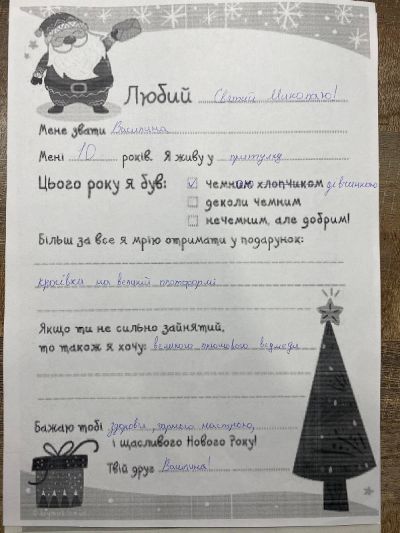 Любий Святий Миколаю!
Мене звати Василина
Мені 10 років. Я живу у притулку
Цього року я був: ✓ чемним хлопчиком дівчинкою
деколи чемним
нечемним, але добрим!
Більш за все я мрію отримати у подарунок:
кросівки на великій платформі
Якщо ти не сильно зайнятий,
то також я хочу: великого плюшового ведмедя
Бажаю тобі здоров'я, гарного настрою,
і щасливого Нового Року!
Твій друг Василина!